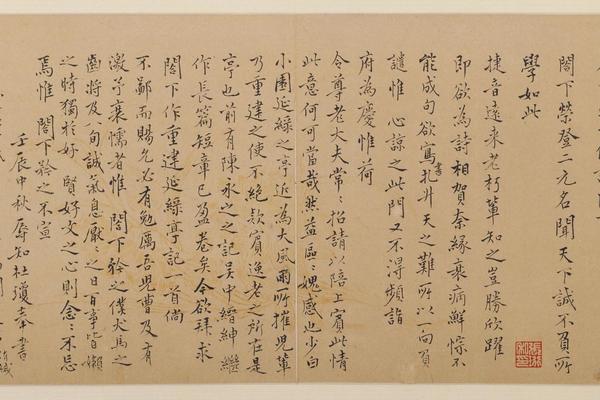 閣下榮登二元名聞天下誠不負所
學如此
捷音遠來老朽輩知之豈勝欣躍
即欲為詩相賀奈緣衰病鮮悰不
能成句欲寫書扎升天之難所以一向負
譴惟心諒之此門又不得頻詣
府為慶惟荷
令尊老大夫常〻招請以陪上賓此情
此意何可當哉然益區〻媿感也少白
小園延綠之亭近為大風雨所摧兒輩
乃重建之使不絕欵賓逸老之所在是
亭也前有陳永之之記吳中縉紳繼
作長篇短章已盈卷矣今欲拜求
閣下作重建延綠亭記一首倘
不鄙而賜允必有勉厲吾兒曹及有
激予衰懦者惟 閣下矜之僕犬馬之
齒將及旬誠氣息厭〻之日百事皆嬾
之時獨於好 賢好文之心則念〻不忘
焉惟 閣下矜之不宣
壬辰中秋辱知杜瓊奉書